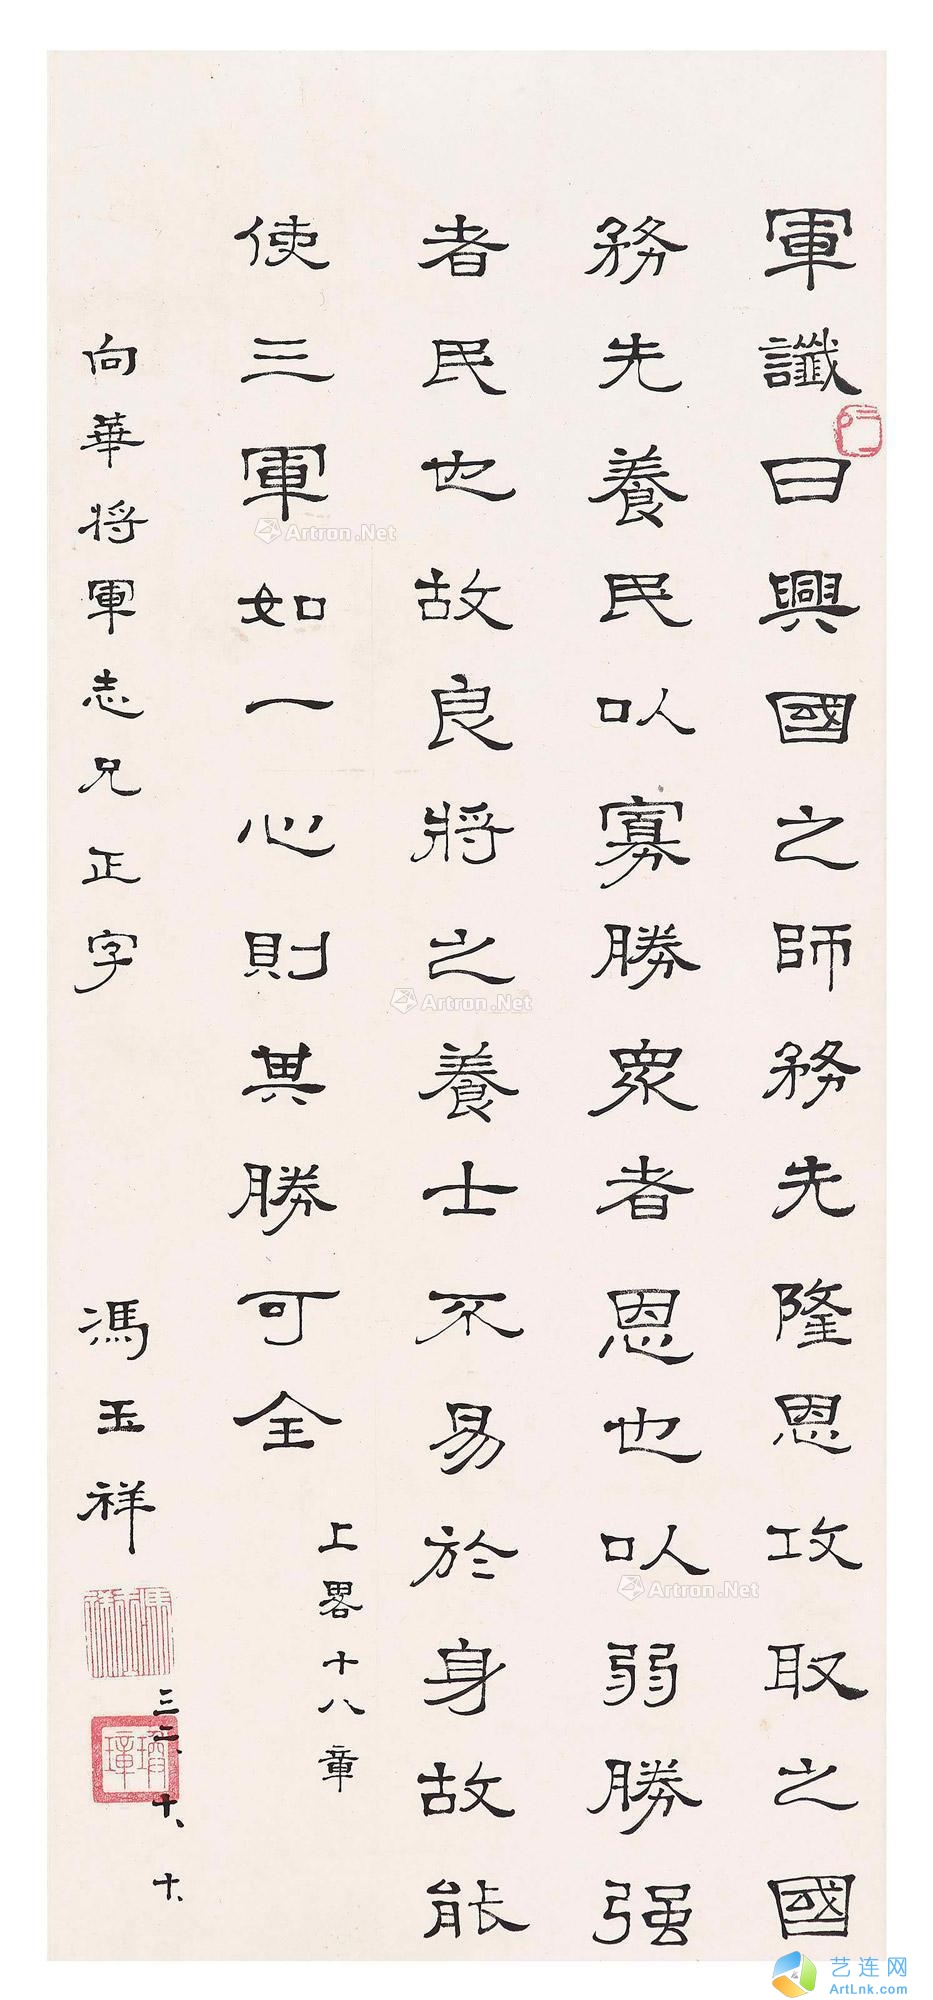 軍讖曰興國之師務先隆恩攻取之國
務先養民以寡勝衆者恩也以弱勝强
者民也故良將之養士不易於身故能
使三軍如一心則其勝可全
上畧十八章
向華将軍志兄正字
馮玉祥
三二、十、十、
Artron.Net
Artron.Net
Artron.Net
艺连网
ArtLnk.com